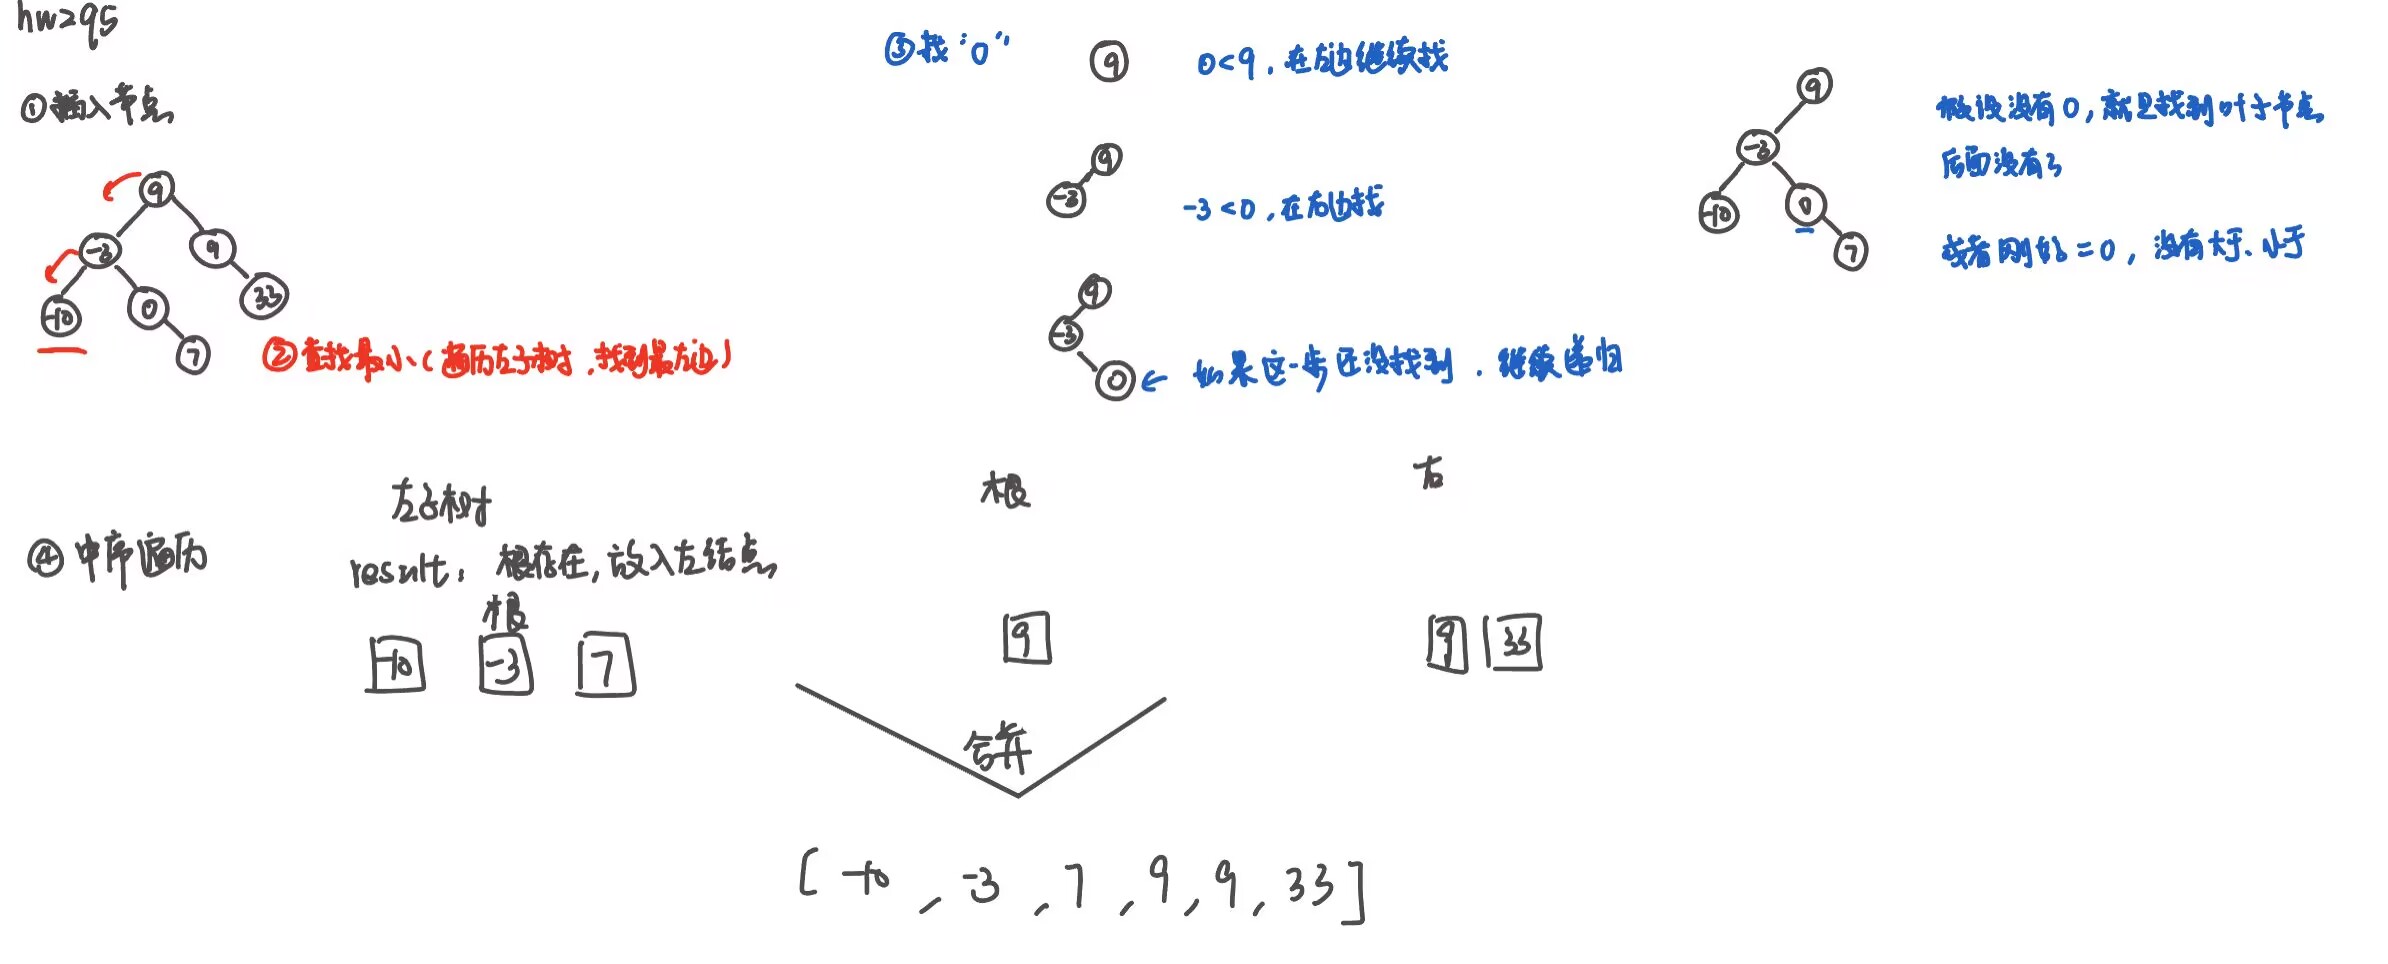 hw2q5
①插入节点
9
-3 9
-10 0 33
7
②查找最小(遍历左子树,找到最左边)
③找"0"
9 0<9,在左边继续找
9
-3 -3<0,在右边找
9
-3
0 ← 如果这一步还没找到,继续递归
9
-3
-10 0
7
假设没有0,就是找到叶子节点
后面没有了
或者刚好=0,没有大于、小于
④中序遍历
左子树 根 右
result: 根存在,放入左结点
根
-10 -3 7 9 9 33
合并
[-10, -3, 7, 9, 9, 33]